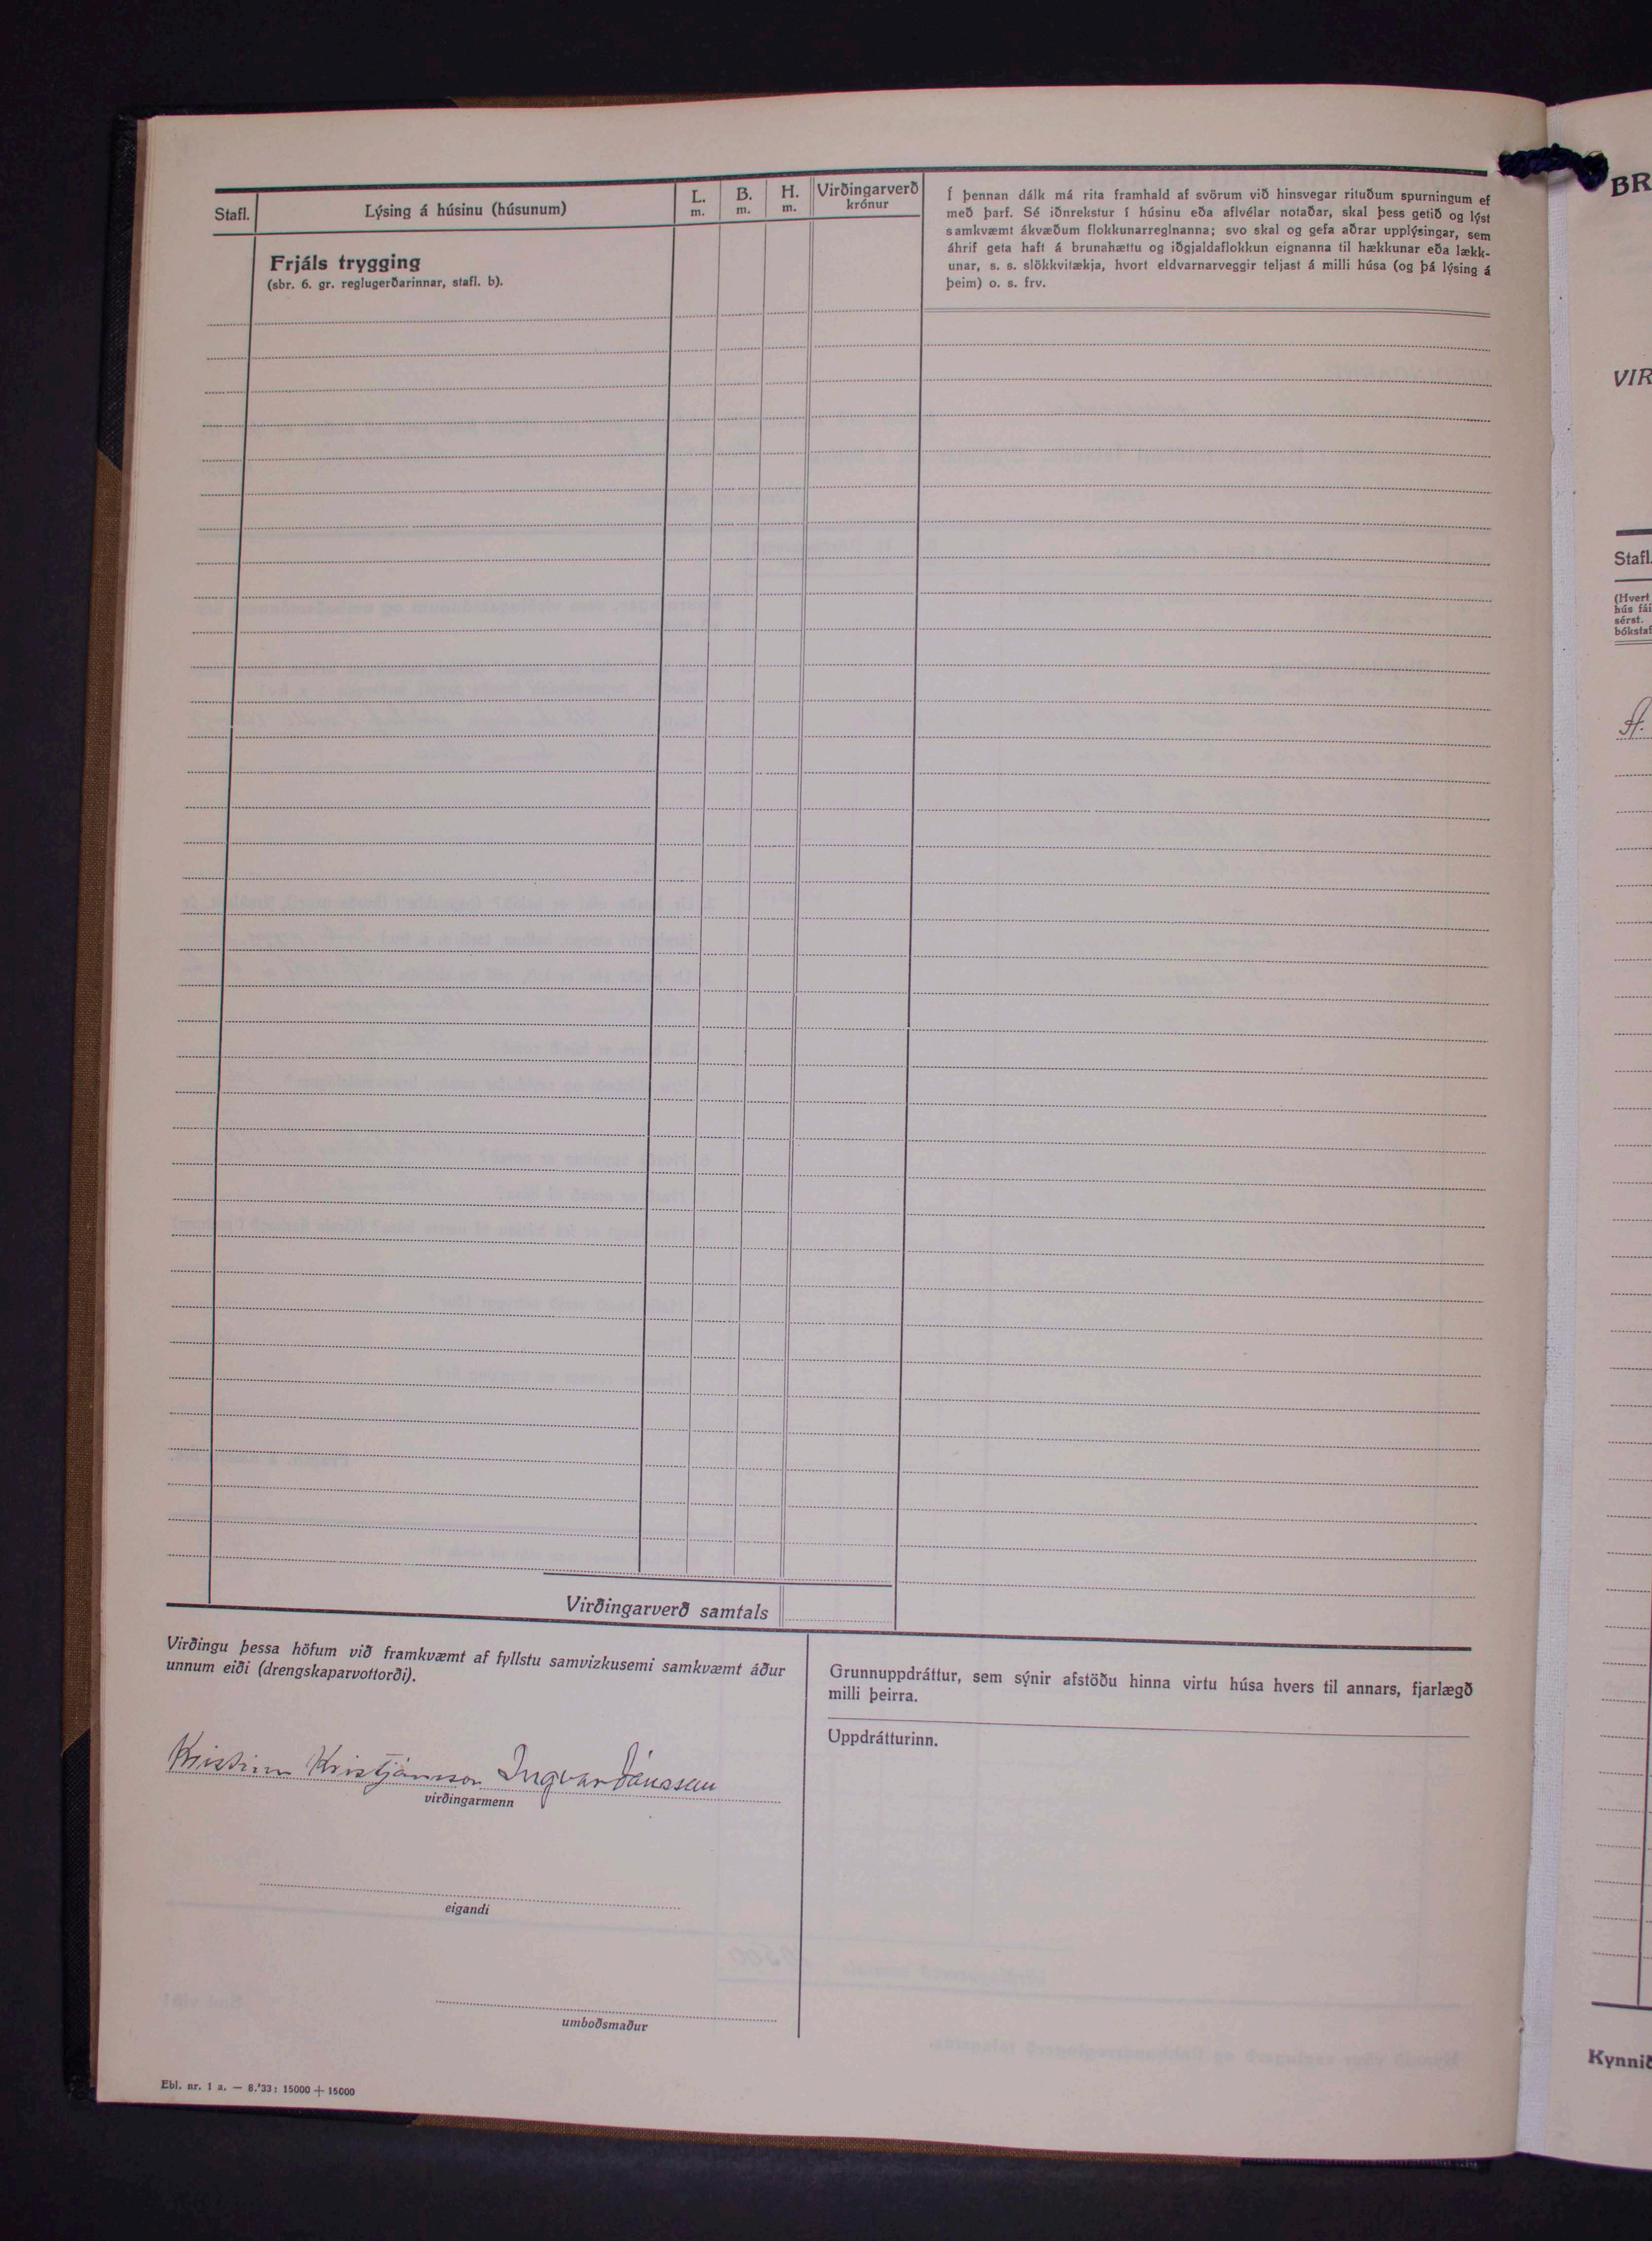 Stafl.
Lýsing á húsinu (húsunum)
L.
m.
B.
m.
H.
m.
Virðingarverð
krónur
Frjáls trygging
(sbr. 6. gr. reglugerðarinnar, stafl. b).
Í þennan dálk má rita framhald af svörum við hinsvegar rituðum spurningum ef
með þarf. Sé iðnrekstur í húsinu eða aflvélar notaðar, skal þess getið og lýst
samkvæmt ákvæðum flokkunarreglnanna; svo skal og gefa aðrar upplýsingar, sem
áhrif geta haft á brunahættu og iðgjaldaflokkun eignanna til hækkunar eða lækk-
unar, s. s. slökkvitækja, hvort eldvarnarveggir teljast á milli húsa (og þá lýsing á
þeim) o. s. frv.
Virðingarverð samtals
Virðingu þessa höfum við framkvæmt af fyllstu samvizkusemi samkvæmt áður
unnum eiði (drengskaparvottorði).
Kristinn Kristjánsson Ingvar Jónsson
virðingarmenn
eigandi
umboðsmaður
Ebl. nr. 1 a. — 8.'33: 15000 + 15000
Grunnuppdráttur, sem sýnir afstöðu hinna virtu húsa hvers til annars, fjarlægð
milli þeirra.
Uppdrátturinn.
BR
VIR
Stafl.
(Hvert
hús fái
sérst.
bókstaf
A.
Kynnið